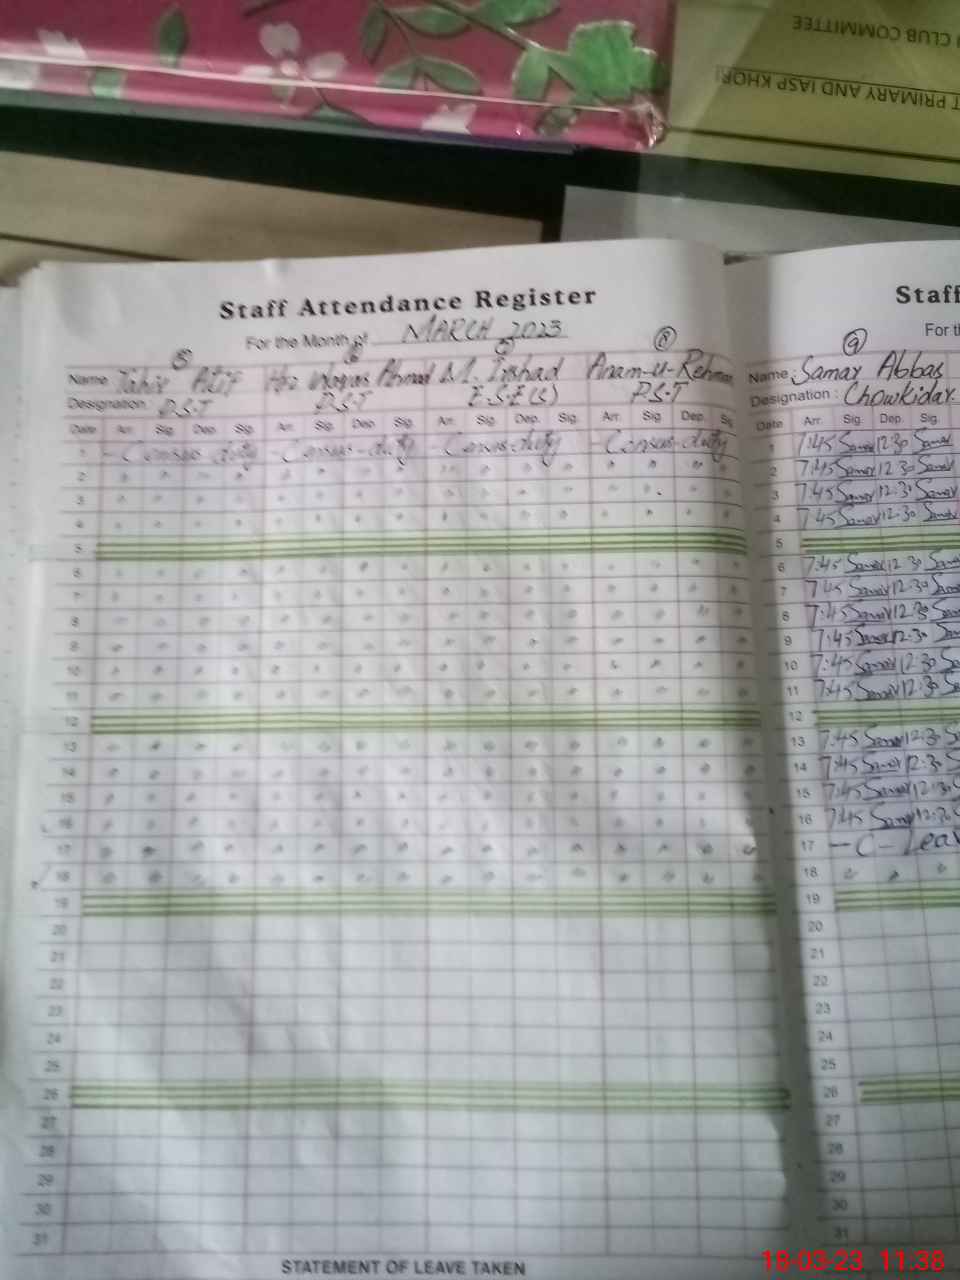 CLUB COMMITTEE
T PRIMARY AND IASP KHOR
Staff Attendance Register
For the Month of MARCH 2023
5 6 7 8
Name Tahir Atif Waqas Ahmad M. Irshad Anam-u-Rehman
Designation : P.S.T P.S.T E.S.E(S) P.S.T
Date Arr. Sig. Dep. Sig. Arr. Sig. Dep. Sig. Arr. Sig. Dep. Sig. Arr. Sig. Dep. Sig.
1 - Census duty - Census-duty - Census-duty - Census-duty
2
3
4
5
6
7
8
9
10
11
12
13
14
15
16
17
18
19
20
21
22
23
24
25
26
27
28
29
30
31
STATEMENT OF LEAVE TAKEN
Staff
For th
9
Name : Samar Abbas
Designation : Chowkidar.
Date Arr. Sig. Dep. Sig.
1 7:45 Samar 12:30 Samar
2 7:45 Samar 12:30 Samar
3 7:45 Samar 12:30 Samar
4 7:45 Samar 12:30 Samar
5
6 7:45 Samar 12:30 Sama
7 7:45 Samar 12:30 Sama
8 7:45 Samar 12:30 Sama
9 7:45 Samar 12:30 Sam
10 7:45 Samar 12:30 Sa
11 7:45 Samar 12:30 Sa
12
13 7:45 Samar 12:30 Sa
14 7:45 Samar 12:30 S
15 7:45 Samar 12:30 S
16 7:45 Samar 12:30 S
17 - C - Leav
18
19
20
21
22
23
24
25
26
27
28
29
30
31
18-03-23 11:38